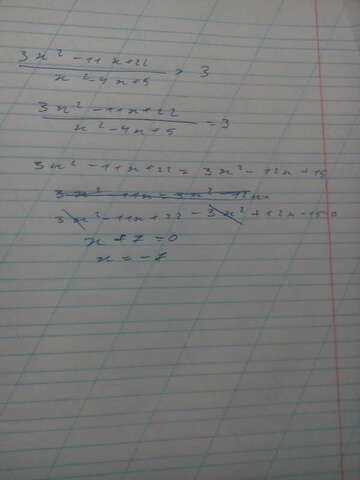 3x² - 11x+22 / x² - 4x+5 > 3
3x² - 11x+22 / x² - 4x+5 = 3
3x² - 11x+22 = 3x² - 12x + 15
3x² - 11x = 3x² - 12x
3x² - 11x+22 - 3x² + 12x - 15 = 0
x + 7 = 0
x = -7